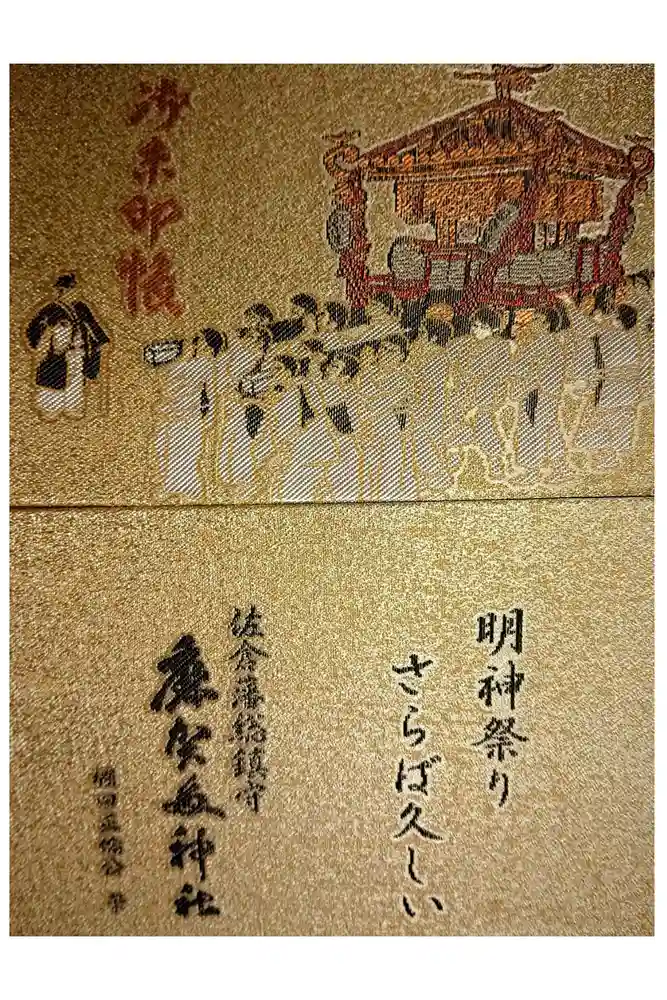 御朱印帳
明神祭り
さらば久しい
佐倉藩総鎮守
麻賀多神社